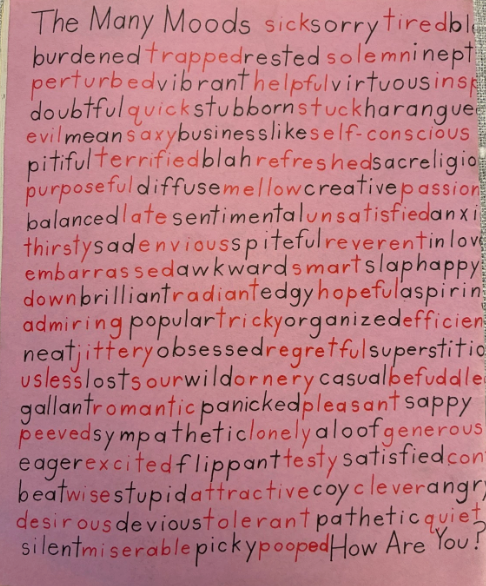 The Many Moods sicksorrytiredbl
burdenedtrappedrestedsolemninept
perturbedvibranthelpfulvirtuousinsp
doubtfulquickstubbornstuckharangue
evilmeansaxybusinesslikeself-conscious
pitifulterrifiedblahrefreshedsacreligio
purposefuldiffusemellowcreativepassion
balancedlatesentimentalunsatisfiedanxi
thirstysadenviousspitefulreverentinlov
embarrassedawkwardsmartslaphappy
downbrilliantradiantedgyhopefulaspirin
admiringpopulartrickyorganizedefficien
neatjitteryobsessedregretfulsuperstitio
uslesslostsourwildornerycasualbefuddle
gallantromanticpanickedpleasantsappy
peevedsympatheticlonelyaloofgenerous
eagerexcitedflippanttestysatisfiedcon
beatwisestupidattractivecoycleverangr
desirousdevioustolerantpatheticquiet
silentmiserablepickypoopedHow Are You?